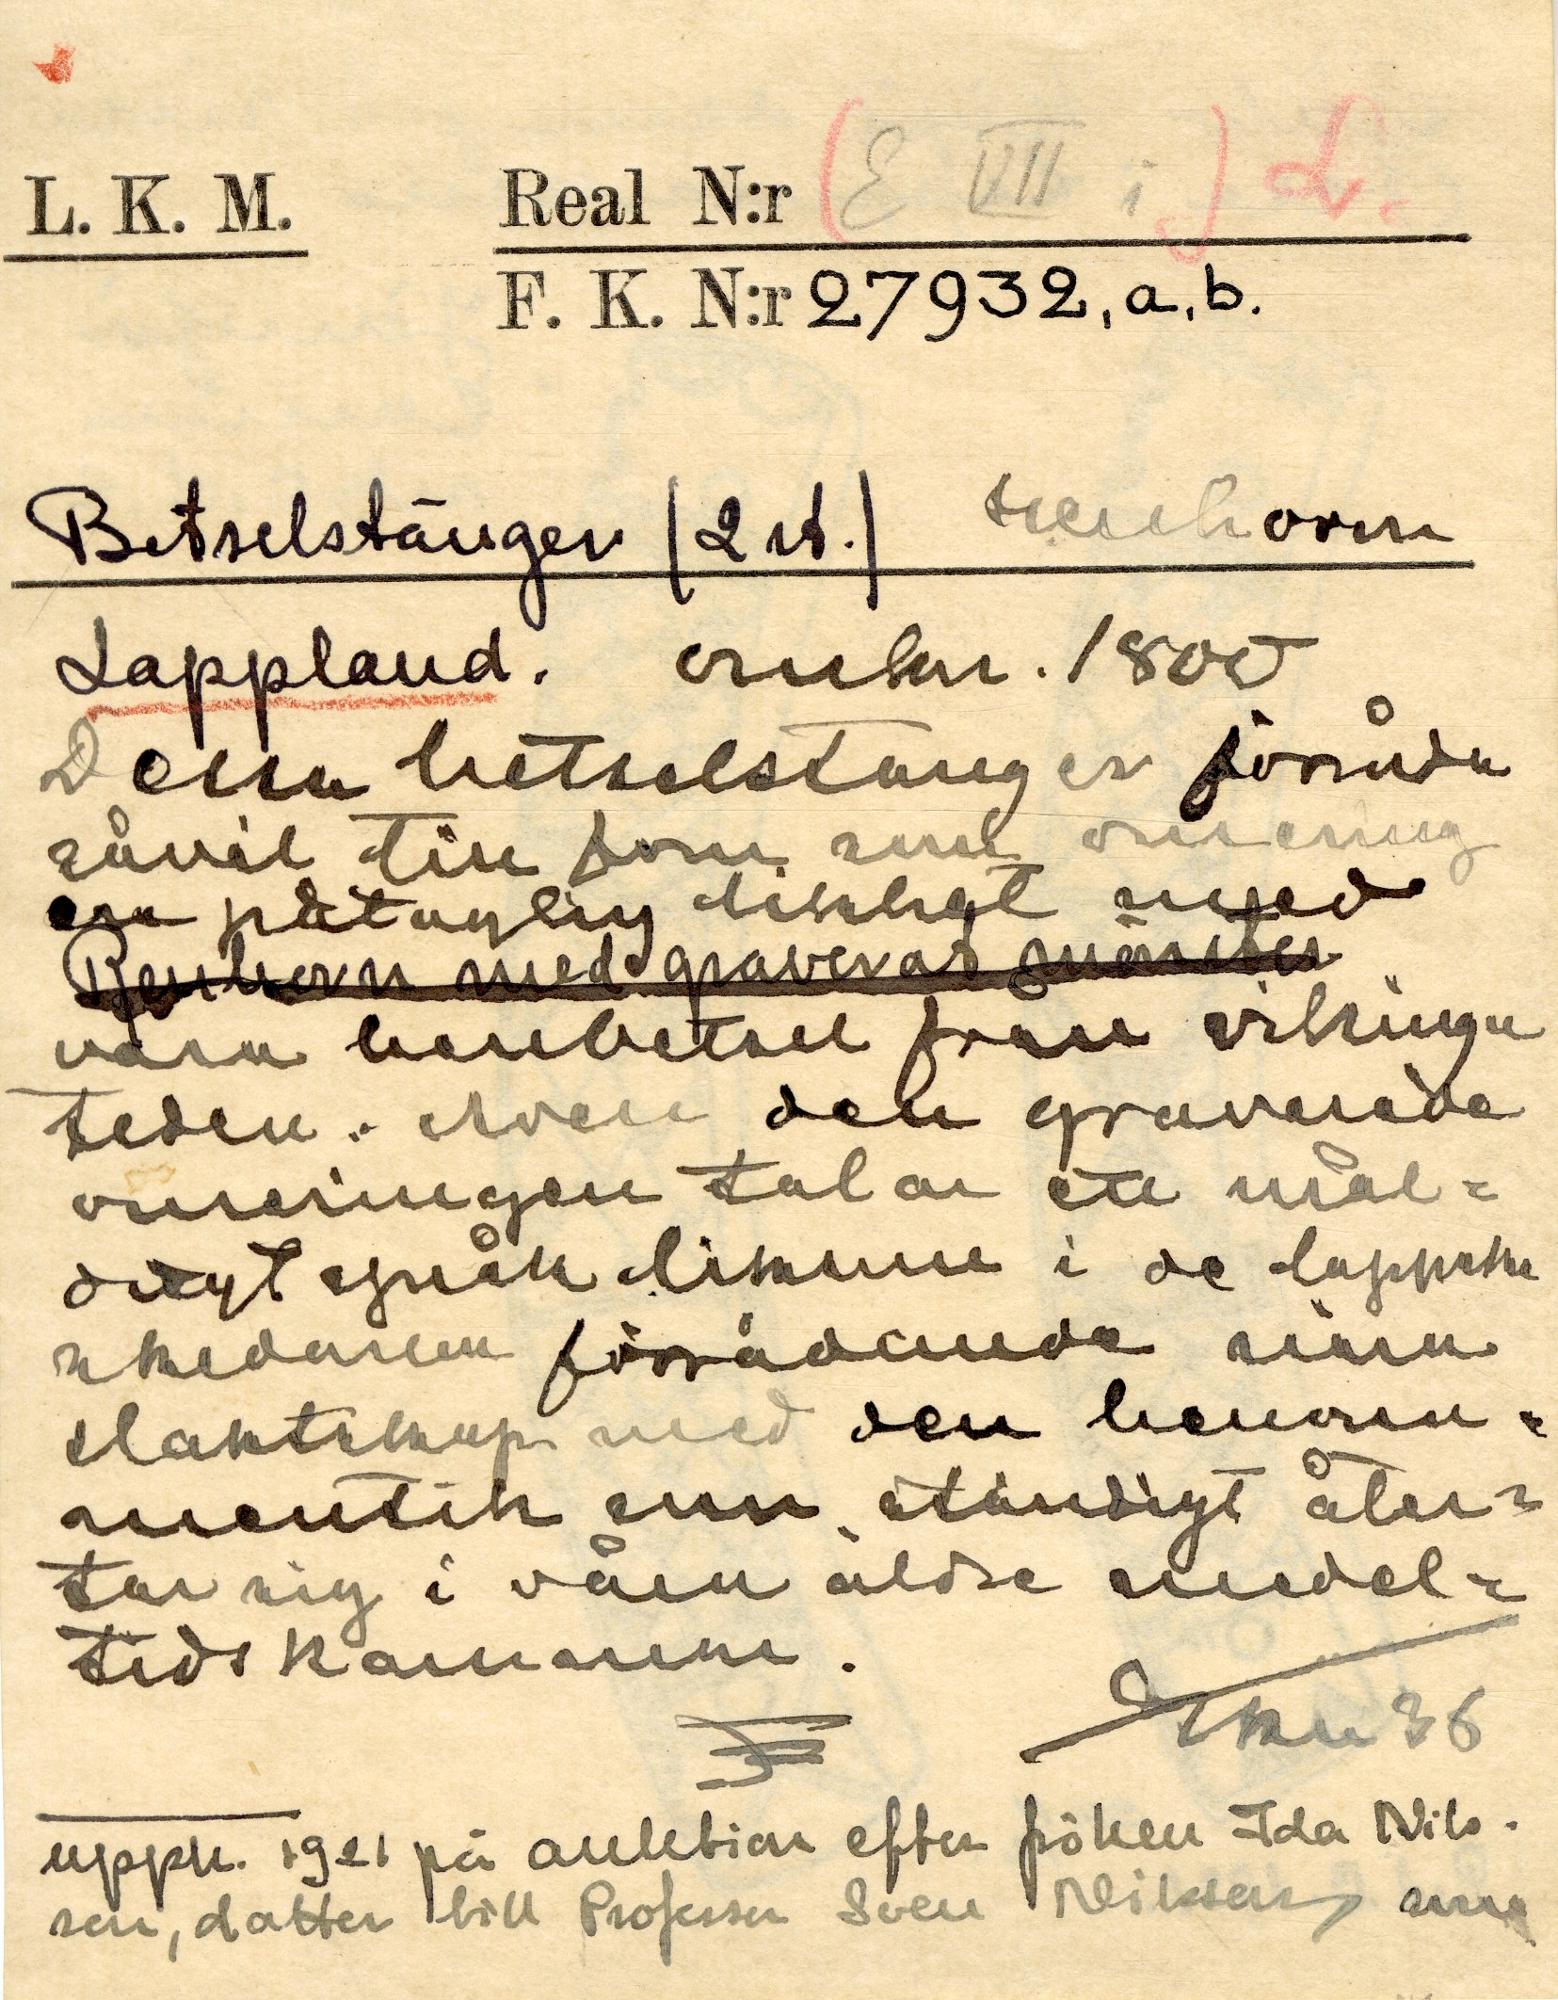 L. K. M. Real N:r (E VII i) L.
F. K. N:r 27932, a, b.
Betselstänger (2 st.) renhorn
Lappland. omkr. 1800
Dessa betselstänger förråda
såväl till form som ornering
en påtaglig likhet med
Renhorn med graverat mönster
våra benbetsel från vikinga
tiden. Även den graverade
orneringen talar ett
språk liksom i de lappska
skedarna förrådande nära
släktskap med den benorna-
mentik som ständigt åter-
tar sig i våra äldre medel-
tidskammar.
36
uppk. 1921 på auktion efter fröken Ida Nils-
son, dotter till Professor Sven Nilsson, som